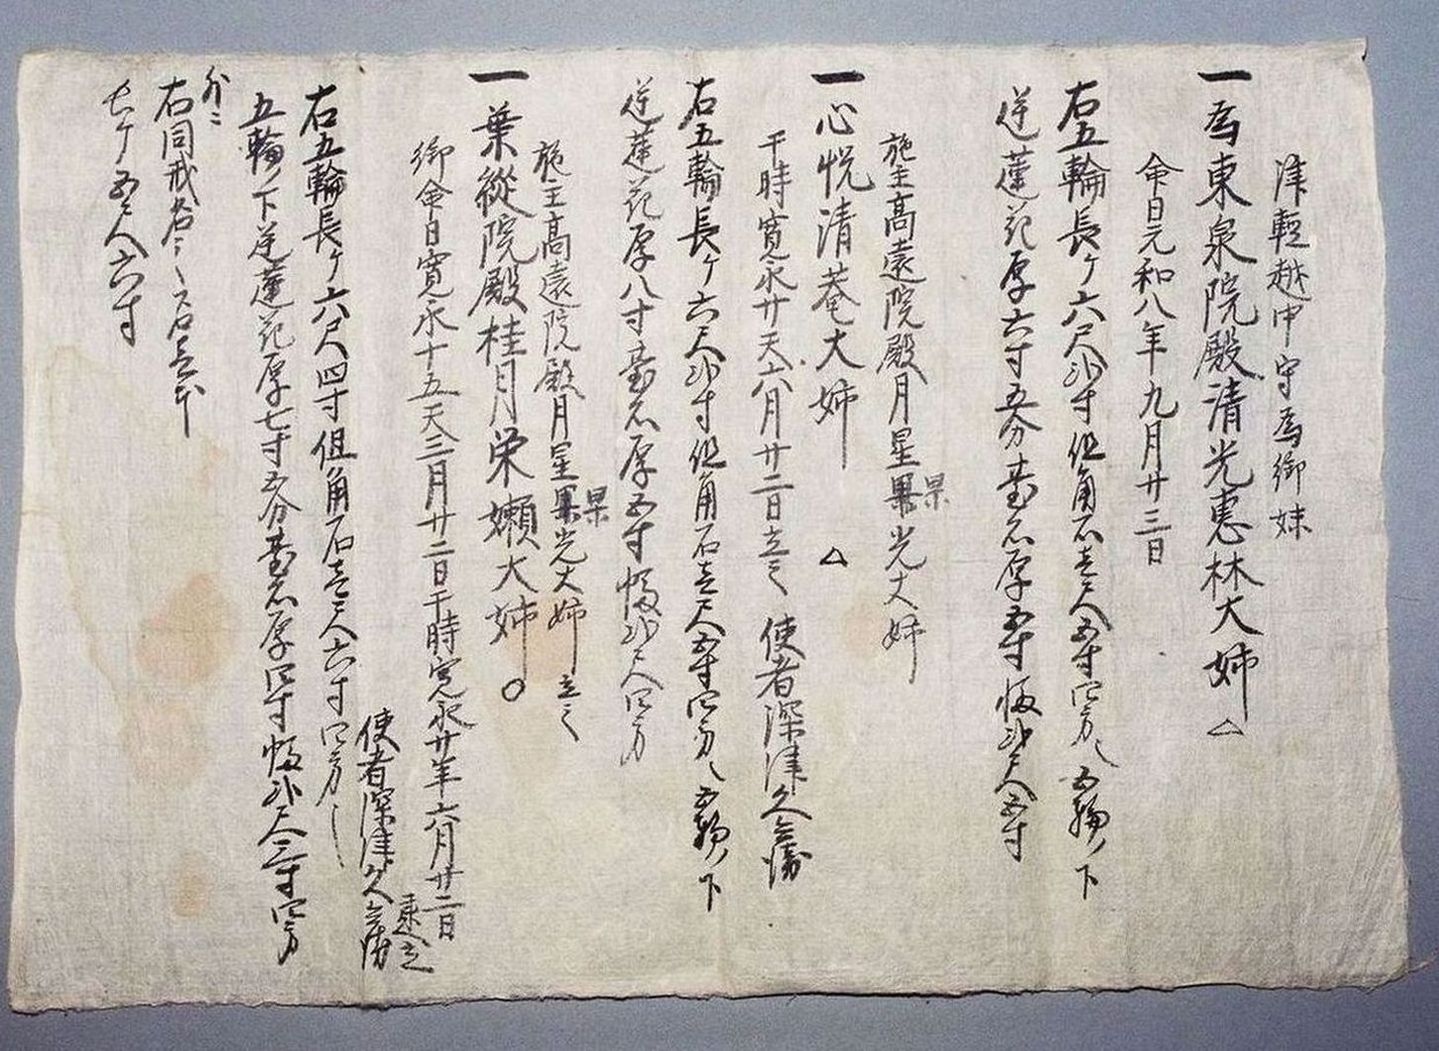 津軽越中守為御妹
一為東泉院殿清光恵林大姉△
命日元和八年九月廿三日
右五輪長ケ六尺弐寸但角石壱尺五寸四方〆五輪ノ下
逆蓮花厚六寸五分臺石厚五寸幅弐尺五寸
施主高遠院殿月星果光大姉
果
一心悦清菴大姉 △
干時寛永廿天六月廿二日立之 使者深津久会
右五輪長ケ六尺弐寸但角石壱尺五寸四方〆五輪ノ下
逆蓮花厚八寸臺石厚五寸幅弐尺四方
施主高遠院殿月星果光大姉立之
果
一葉縱院殿桂月栄嬾大姉○
御命日寛永十五天三月廿二日干時寛永廿年六月廿二日
立之
使者深津久会
右五輪長ケ六尺四寸但角石壱尺六寸四方〆
五輪ノ下逆蓮花厚七寸五分臺石厚四寸幅弐尺三寸四方
外ニ
右同戒名之石壱本
長ケ五尺六寸